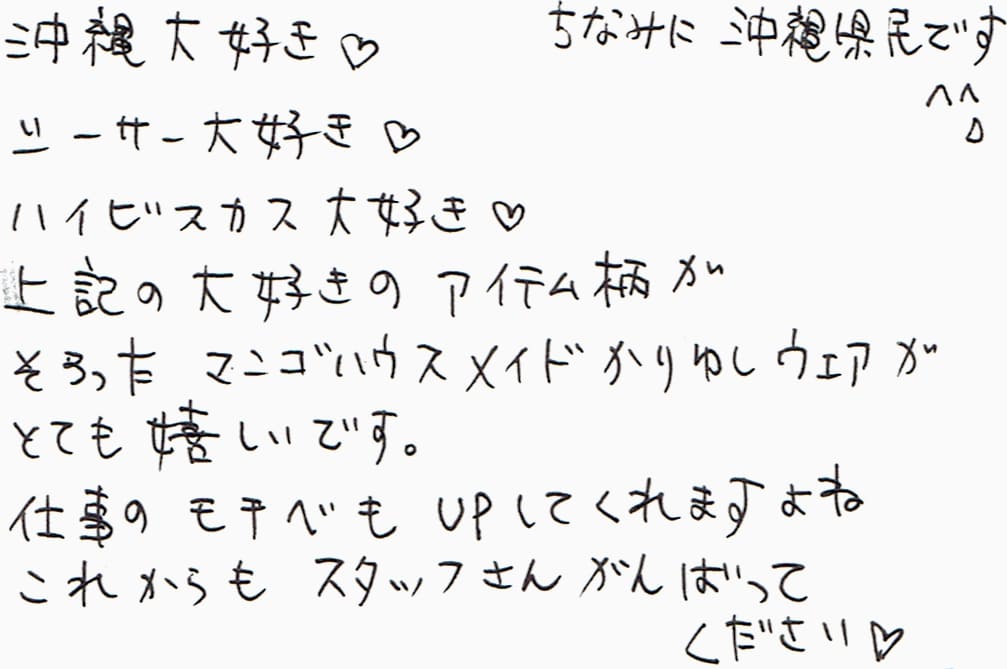 沖縄大好き♡
ちなみに沖縄県民です
^^
シーサー大好き♡
ハイビスカス大好き♡
上記の大好きのアイテム柄が
そろった マンゴハウスメイドかりゆしウェアが
とても嬉しいです。
仕事のモチベもUPしてくれますよね
これからもスタッフさんがんばって
ください♡